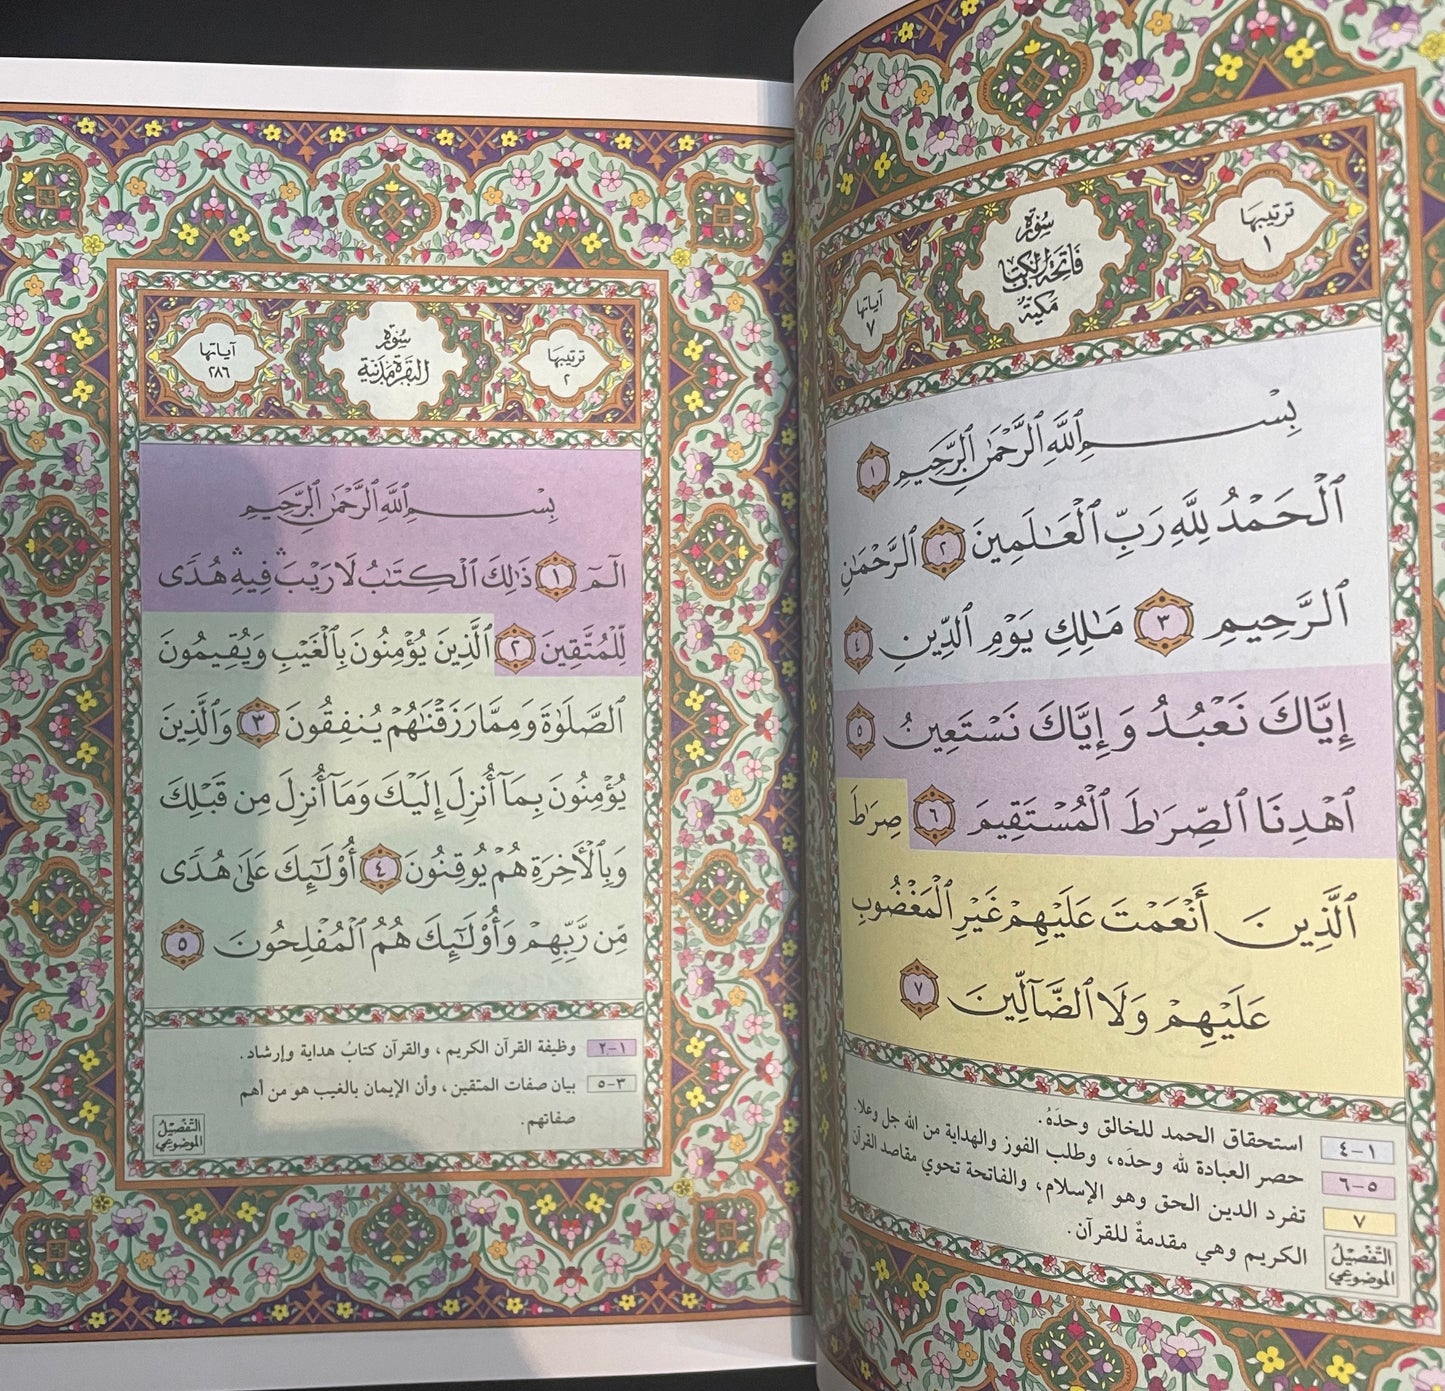 ترتيبها
١
سُورَةُ
فَاتِحَةِ الكِتَابِ
مَكِّيَّةٌ
آياتها
٧
بِسۡمِ ٱللَّهِ ٱلرَّحۡمَٰنِ ٱلرَّحِيمِ ١
ٱلۡحَمۡدُ لِلَّهِ رَبِّ ٱلۡعَٰلَمِينَ ٢ ٱلرَّحۡمَٰنِ
ٱلرَّحِيمِ ٣ مَٰلِكِ يَوۡمِ ٱلدِّينِ ٤
إِيَّاكَ نَعۡبُدُ وَإِيَّاكَ نَسۡتَعِينُ ٥
ٱهۡدِنَا ٱلصِّرَٰطَ ٱلۡمُسۡتَقِيمَ ٦ صِرَٰطَ
ٱلَّذِينَ أَنۡعَمۡتَ عَلَيۡهِمۡ غَيۡرِ ٱلۡمَغۡضُوبِ
عَلَيۡهِمۡ وَلَا ٱلضَّآلِّينَ ٧
١-٤ استحقاق الحمد للخالق وحدَهُ.
٥-٦ حصر العبادة لله وحدَه، وطلب الفوز والهداية من الله جل وعلا.
٧ تفرد الدين الحق وهو الإسلام، والفاتحة تحوي مقاصد القرآن
الكريم وهي مقدمةٌ للقرآن.
التَّفْصِيْلُ
الموضوعي
ترتيبها
٢
سُورَةُ
البَقَرَةِ مَدَنِيَّة
آياتها
٢٨٦
بِسۡمِ ٱللَّهِ ٱلرَّحۡمَٰنِ ٱلرَّحِيمِ
الٓمٓ ١ ذَٰلِكَ ٱلۡكِتَٰبُ لَا رَيۡبَۛ فِيهِۛ هُدٗى
لِّلۡمُتَّقِينَ ٢ ٱلَّذِينَ يُؤۡمِنُونَ بِٱلۡغَيۡبِ وَيُقِيمُونَ
ٱلصَّلَوٰةَ وَمِمَّا رَزَقۡنَٰهُمۡ يُنفِقُونَ ٣ وَٱلَّذِينَ
يُؤۡمِنُونَ بِمَآ أُنزِلَ إِلَيۡكَ وَمَآ أُنزِلَ مِن قَبۡلِكَ
وَبِٱلۡأٓخِرَةِ هُمۡ يُوقِنُونَ ٤ أُوْلَٰٓئِكَ عَلَىٰ هُدٗى
مِّن رَّبِّهِمۡۖ وَأُوْلَٰٓئِكَ هُمُ ٱلۡمُفۡلِحُونَ ٥
١-٢ وظيفة القرآن الكريم، والقرآن كتابُ هداية وإرشاد.
٣-٥ بيان صفات المتقين، وأن الإيمان بالغيب هو من أهم
صفاتهم.
التَّفْصِيْلُ
الموضوعي